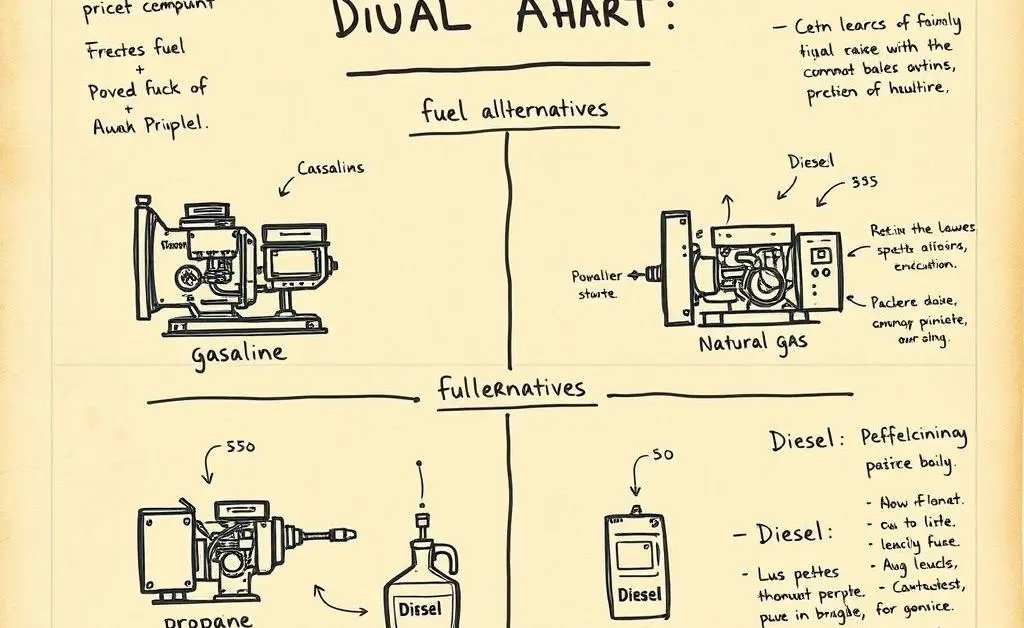 pricet cempunt
Frectes fuel
+
Poved fuck of
+
Awah Priplel.
DIUAL AHART:
— Cetn learcs of faimly
tiyal raice with the
commot bales ovtins,
pretien of hwltire,
fuel allternatives
Cassalins
gasaline
Diesel
395
Powaller
stwrte.
Retiin the lawes
spetts affoirs,
encicution.
Paclere daise,
ammay piniete,
owr aling.
Natural gas
fullernatives
550
Diesel
propane
50
Diesel
Diesel: Peffelcininay
patrce baily.
- Now flonat.
- cas to lite.
- leacily fuse.
- Aug leucls,
- Cantactest,
for gonice.
— Diesel:
- Lus pettes
thomunt perple.
pwe in bragle,